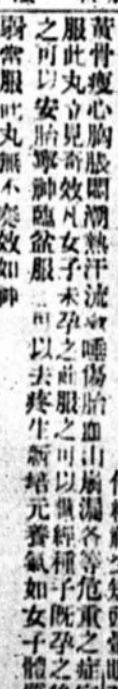 黃骨瘦心胸脹悶潮熱汗流嗽唾傷胎血山崩漏各等危重之症
服此丸立見奇效凡女子未孕之前服之可以調經種子既孕之
之可以安胎寧神臨盆服可以去疼生新培元養氣如女子體
弱常服此丸無不奏效如神